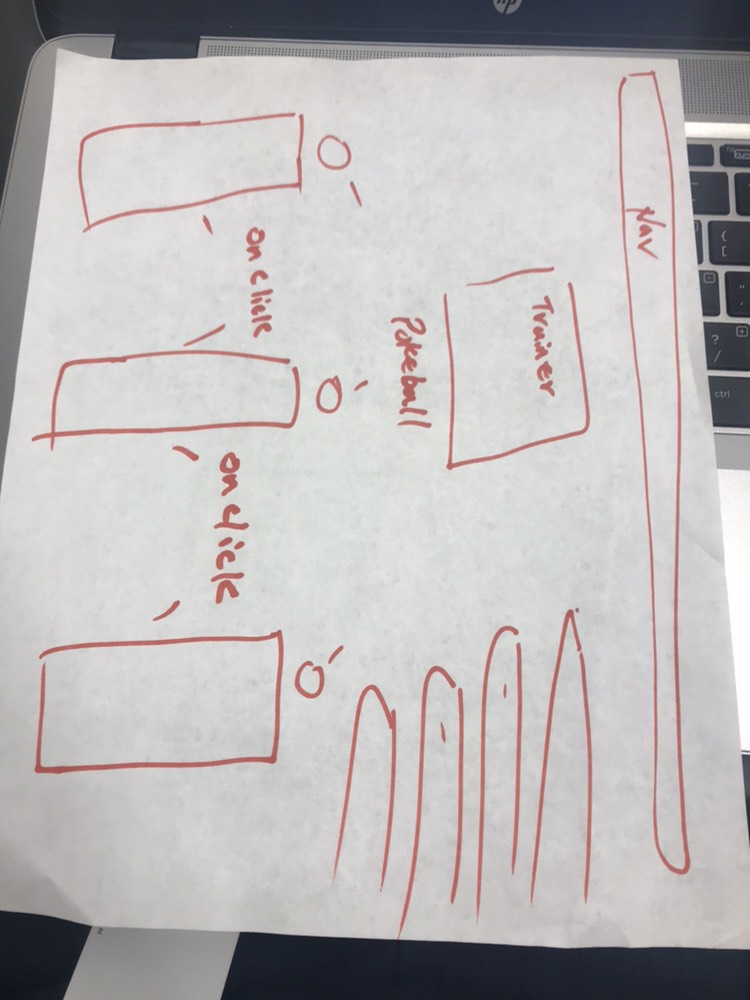 Nav
Trainer
Pokeball
on click
on click
hp
ctrl